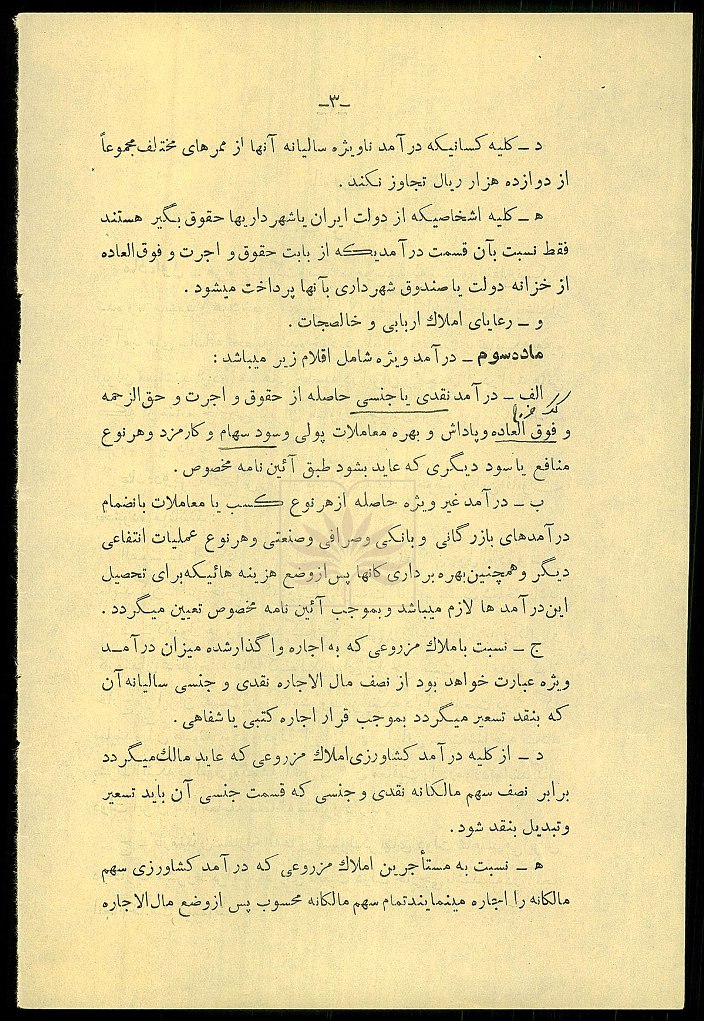 ـ۳ـ
د ـ کلیه کسانیکه درآمد ناویژه سالیانه آنها از ممرهای مختلف مجموعاً
از دوازده هزار ریال تجاوز نکند .
ه ـ کلیه اشخاصیکه از دولت ایران یا شهرداریها حقوق بگیر هستند
فقط نسبت بآن قسمت درآمدیکه از بابت حقوق و اجرت و فوق‌العاده
از خزانه دولت یا صندوق شهرداری بآنها پرداخت میشود .
و ـ رعایای املاک اربابی و خالصجات .
ماده‌سوم ـ درآمد ویژه شامل اقلام زیر میباشد :
الف ـ درآمد نقدی یا جنسی حاصله از حقوق و اجرت و حق‌الزحمه
و فوق العاده و پاداش و بهره معاملات پولی و سود سهام و کارمزد و هر نوع
منافع یا سود دیگری که عاید بشود طبق آئین نامه مخصوص .
ب ـ درآمد غیر ویژه حاصله از هر نوع کسب یا معاملات بانضمام
درآمدهای بازرگانی و بانکی و صرافی و صنعتی و هر نوع عملیات انتفاعی
دیگر و همچنین بهره برداری کانها پس از وضع هزینه هائیکه برای تحصیل
این درآمد ها لازم میباشد و بموجب آئین نامه مخصوص تعیین میگردد .
ج ـ نسبت باملاک مزروعی که به اجاره واگذار شده میزان درآمد
ویژه عبارت خواهد بود از نصف مال الاجاره نقدی و جنسی سالیانه آن
که بنقد تسعیر میگردد بموجب قرار اجاره کتبی یا شفاهی .
د ـ از کلیه درآمد کشاورزی املاک مزروعی که عاید مالک میگردد
برابر نصف سهم مالکانه نقدی و جنسی که قسمت جنسی آن باید تسعیر
و تبدیل بنقد شود .
ه ـ نسبت به مستأجرین املاک مزروعی که درآمد کشاورزی سهم
مالکانه را اجاره مینمایند تمام سهم مالکانه محسوب پس از وضع مال‌الاجاره